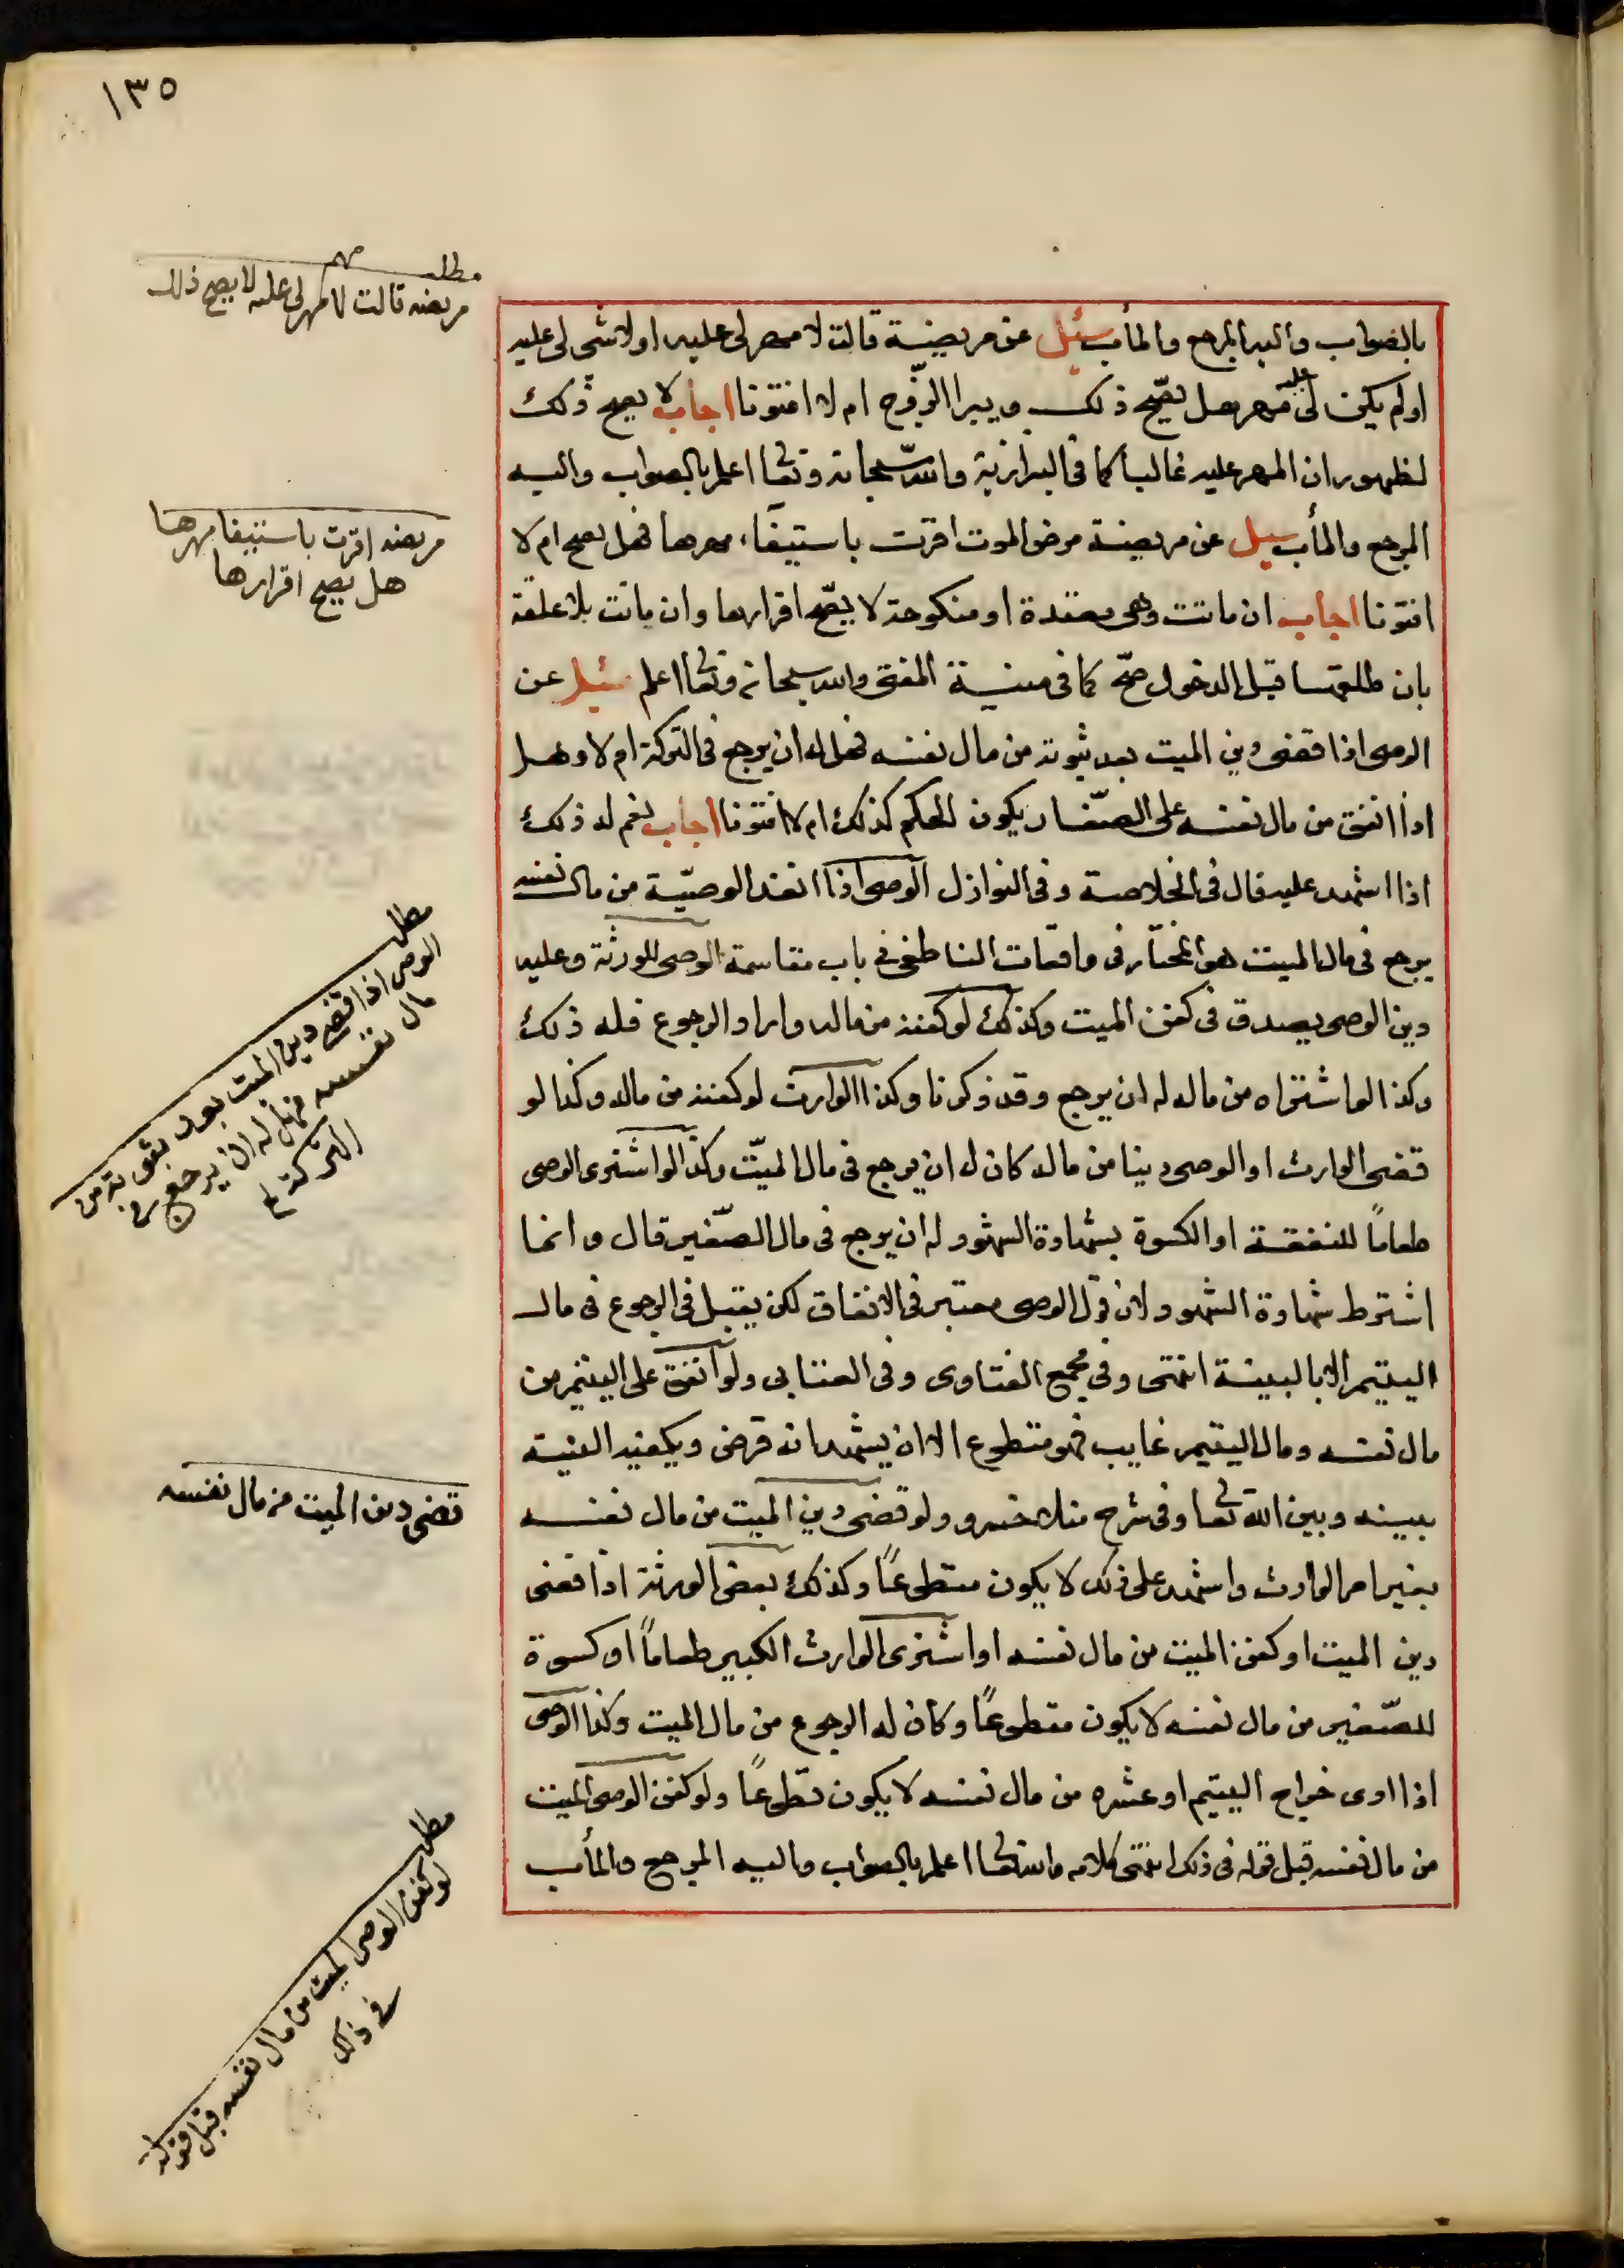 ١٣٥
مطلب مهم
مريضه قالت لا مهر لى عليه لا يصح ذلك
بالصواب واليه المرجع والمأب سئل عن مريضة قالت لا مهر لى عليه او لا شى لى عليه
او لم يكن لى عليه مهر هل يصّح ذلك ويبرا الزّوج ام لا افتونا اجاب لا يصح ذلك
لظهور ان المهر عليه غالبا كما فى البزازية والله سبحانه وتعا اعلم بالصواب واليه
المرجع والمأب سيل عن مريضة مرض الموت اقرت باستيفآء مهرها فهل يصح ام لا
مريضه اقرت باستيفا مهرها
هل يصح اقرارها
افتونا اجاب ان ماتت وهى معتدة او منكوحة لا يصّح اقرارها وان بانت بلا علقة
بان طلقها قبل الدخول صحّ كما فى منية المفتى والله سبحانه وتعا اعلم سئل عن
الوصى اذا قضى دين الميت بعد ثبوته من مال نفسه فهل له ان يرجع فى التركة ام لا وهل
اذا انفق من مال نفسه على الصّغار يكون الحكم كذلك ام لا افتونا اجاب نعم له ذلك
اذا اشهد عليه قال فى الخلاصة وفى النوازل الوصى اذا انفذ الوصيّة من مال نفسه
يرجع فى مال الميت هو المختار فى واقعات الناطفى فى باب مقاسمة الوصى للورثة وعليه
مطلب
الوصى اذا قضى دين الميت بعد ثبوته من
مال نفسه فهل له ان يرجع فى
التركة ام لا
دين الوصى يصدق فى كفن الميت وكذلك لو كفنه من ماله واراد الرجوع فله ذلك
وكذا لو اشتراه من ماله له ان يرجع وقد ذكرنا وكذا الوارث لو كفنه من ماله وكذا لو
قضى الوارث او الوصى دينا من ماله كان له ان يرجع فى مال الميّت وكذا لو اشترى الوصى
طعاماً للنفقة او الكسوة بشهادة الشهود له ان يرجع فى مال الصّغير قال وانما
اشترط شهادة الشهود لان قول الوصى معتبر فى الانفاق لكن يقبل فى الرجوع فى مال
اليتيم الا بالبينة انتهى وفى مجمع الفتاوى وفى العتابى ولو انفق على اليتيم من
مال نفسه ومال اليتيم غايب فهو متطوع الا ان يشهد انه قرض ويكفيه النية
قضى دين الميت من مال نفسه
بينه وبين الله تعا وفى شرح منلا خسرو ولو قضى دين الميت من مال نفسه
بغير امر الوارث واشهد على ذلك لا يكون متطوعاً وكذلك بعض الورثة اذا قضى
دين الميت او كفن الميت من مال نفسه او اشترى الوارث الكبير طعاماً او كسوة
للصّغير من مال نفسه لا يكون متطوعاً وكان له الرجوع من مال الميت وكذا الوصى
اذا ادى خراج اليتيم او عشره من مال نفسه لا يكون تطوعاً ولو كفن الوصى الميت
من مال نفسه قبل قوله فى ذلك انتهى كلامه والله تعا اعلم بالصواب واليه المرجع والمأب
مطلب
لو كفن الوصى الميت من مال نفسه قبل قوله
فى ذلك